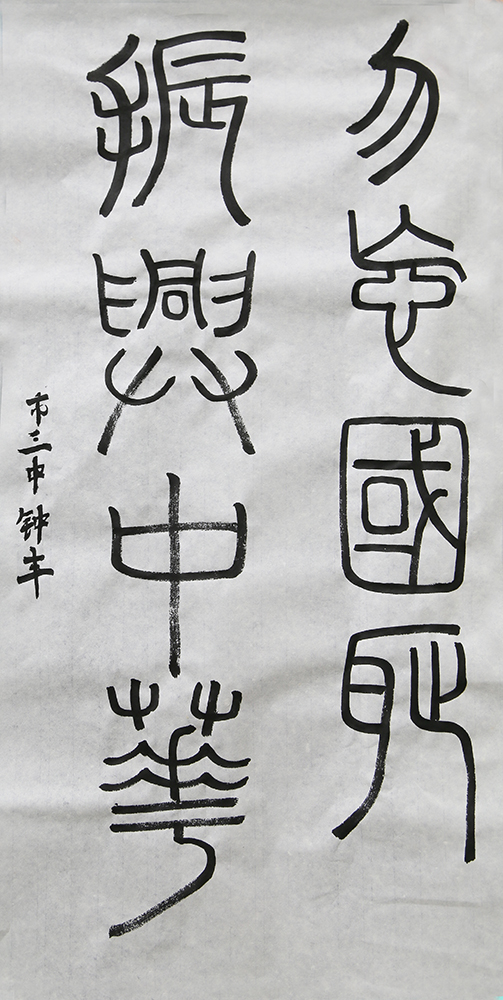 勿忘國恥
振興中華
市三中钟丰